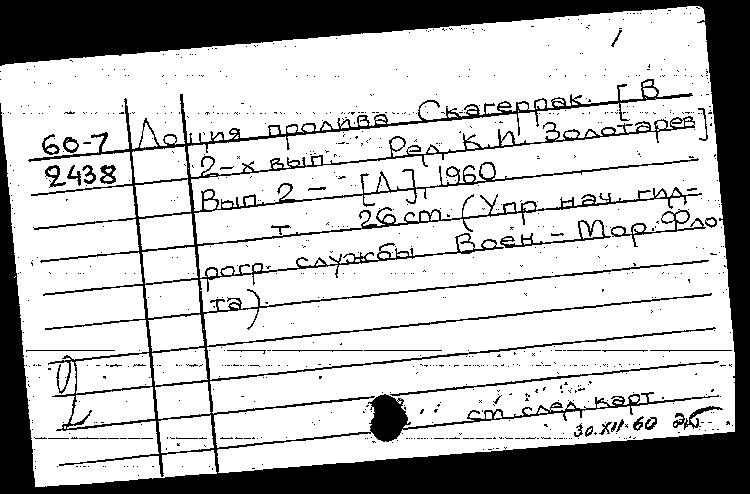 60-7 Лоция пролива Скагеррак. [В
2438 2-х вып. Ред. К.И. Золотарев].
Вып. 2 - [Л.], 1960.
т. 26 см. (Упр. нач. гид-
рогр. службы Воен.-Мор. Фло-
та).
2
см. след. карт.
30.XII.60